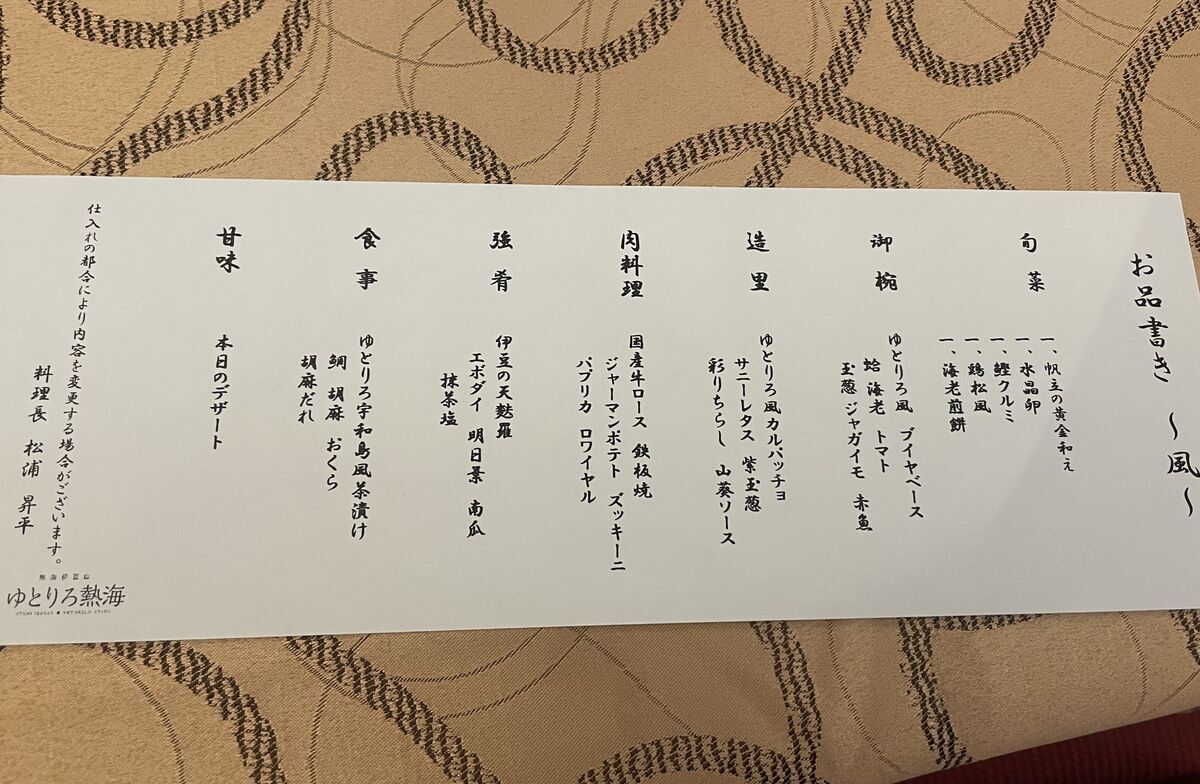 お品書き 〜風〜
旬菜
一、帆立の黄金和え
一、水晶卵
一、鰹クルミ
一、鶏松風
一、海老煎餅
御椀
ゆとりろ風 ブイヤベース
蛤 海老 トマト
玉葱 ジャガイモ 赤魚
造里
ゆとりろ風カルパッチョ
サニーレタス 紫玉葱
彩りちらし 山葵ソース
肉料理
国産牛ロース 鉄板焼
ジャーマンポテト ズッキーニ
パプリカ ロワイヤル
強肴
伊豆の天麩羅
エボダイ 明日葉 南瓜
抹茶塩
食事
ゆとりろ宇和島風茶漬け
鯛 胡麻 おくら
胡麻だれ
甘味
本日のデザート
仕入れの都合により内容を変更する場合がございます。
料理長 松浦 昇平
熱海伊豆山
ゆとりろ熱海